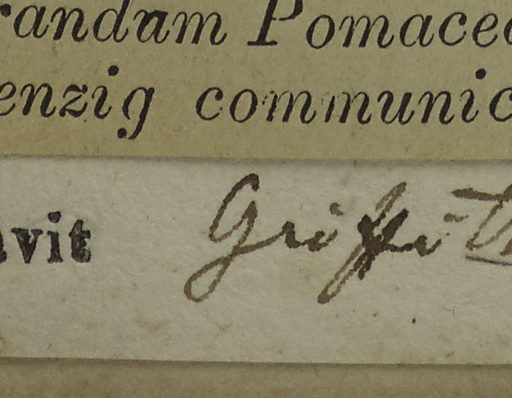 randum Pomaceo
enzig communic
avit Griffith